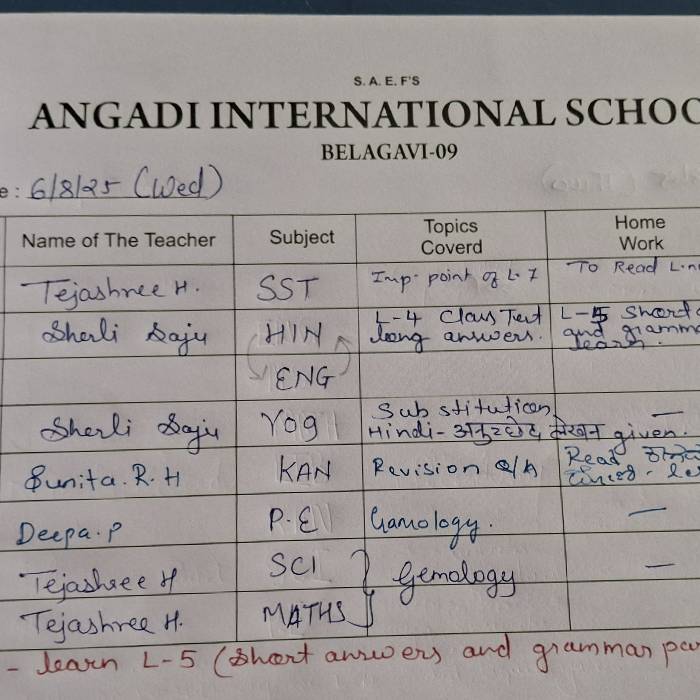 S. A. E. F'S
ANGADI INTERNATIONAL SCHOO
BELAGAVI-09
e : 6/8/25 (Wed)
Name of The Teacher Subject Topics Coverd Home Work
Tejashree H. SST Imp. point of L. 7 To Read L.n
Sherli Saju HIN L-4 Class Test long answers. L-5 Short and gramm learn.
ENG
Sherli Saju Yog Substitution Hindi- अनुच्छेद लेखन given. —
Sunita. R. H KAN Revision Q/A Read
Deepa. P P.E Gamology. —
Tejashree H SCI Gemology —
Tejashree H. MATHS
- learn L-5 (Short answers and grammar par